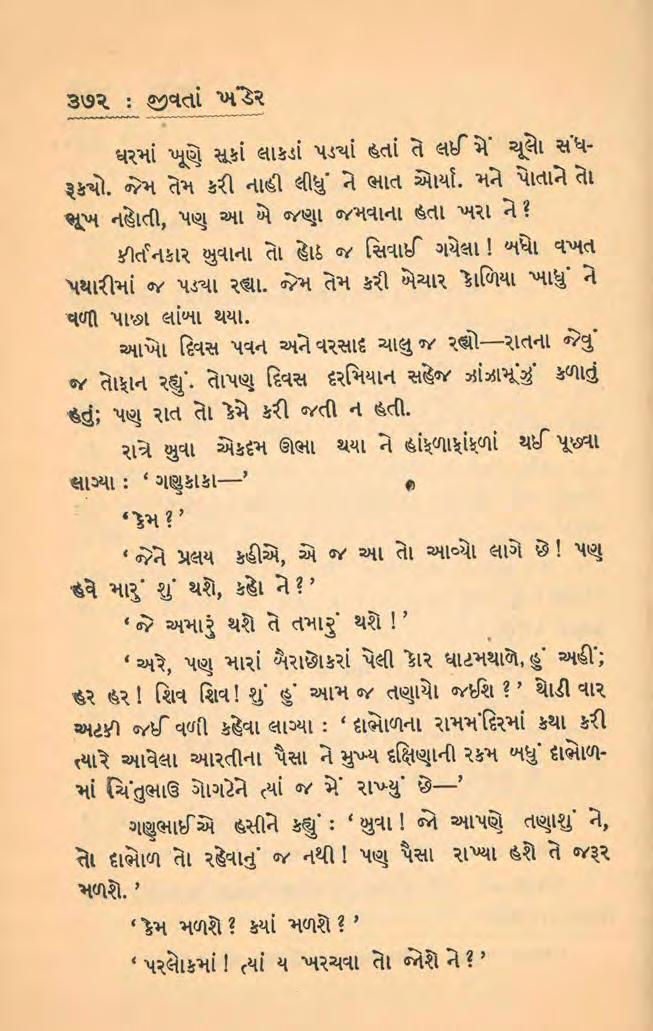 ૩૭૨ : જીવતાં ખંડેર
ઘરમાં ખૂણે સૂકાં લાકડાં પડ્યાં હતાં તે લઈ મેં ચૂલો સંધ-
રૂક્યો. જેમ તેમ કરી નાહી લીધું ને ભાત ઓર્યા. મને પોતાને તો
ભૂખ નહોતી, પણ આ બે જણા જમવાના હતા ખરા ને?
કીર્તનકાર બુવાના તો હોઠ જ સિવાઈ ગયેલા! બધો વખત
પથારીમાં જ પડ્યા રહ્યા. જેમ તેમ કરી બેચાર કોળિયા ખાધું ને
વળી પાછા લાંબા થયા.
આખો દિવસ પવન અને વરસાદ ચાલુ જ રહ્યો—રાતના જેવું
જ તોફાન રહ્યું. તોપણ દિવસ દરમિયાન સહેજ ઝાંઝામૂંઝું કળાતું
હતું; પણ રાત તો કેમે કરી જતી ન હતી.
રાત્રે બુવા એકદમ ઊભા થયા ને હાંફળાફાંફળાં થઈ પૂછવા
લાગ્યા : ‘ ગણુકાકા—’
‘કેમ?’
‘ જેને પ્રલય કહીએ, એ જ આ તો આવ્યો લાગે છે! પણ
હવે મારું શું થશે, કહો ને?’
‘ જે અમારું થશે તે તમારું થશે!’
‘ અરે, પણ મારાં બૈરાછોકરાં પેલી કોર ઘાટમથાળે, હું અહીં;
હર હર! શિવ શિવ! શું હું આમ જ તણાયો જઈશ?’ થોડી વાર
અટકી જઈ વળી કહેવા લાગ્યા : ‘ દાભોળના રામમંદિરમાં કથા કરી
ત્યારે આવેલા આરતીના પૈસા ને મુખ્ય દક્ષિણાની રકમ બધું દાભોળ-
માં ચિંતુભાઉ ગોગટેને ત્યાં જ મેં રાખ્યું છે—’
ગણુભાઈએ હસીને કહ્યું : ‘ બુવા! જો આપણે તણાશું ને,
તો દાભોળ તો રહેવાનું જ નથી! પણ પૈસા રાખ્યા હશે તે જરૂર
મળશે.’
‘ કેમ મળશે? ક્યાં મળશે?’
‘ પરલોકમાં! ત્યાં ય ખરચવા તો જોશે ને?’